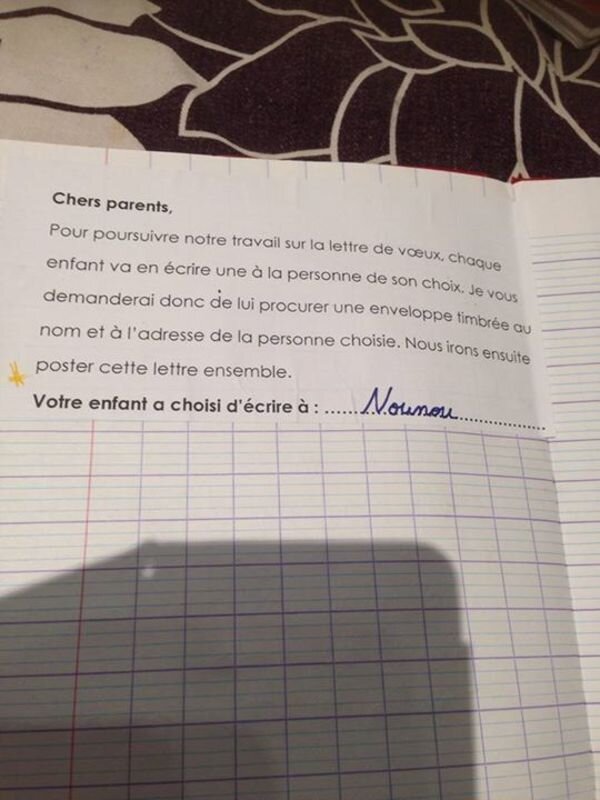 Chers parents,
Pour poursuivre notre travail sur la lettre de vœux, chaque
enfant va en écrire une à la personne de son choix. Je vous
demanderai donc de lui procurer une enveloppe timbrée au
nom et à l'adresse de la personne choisie. Nous irons ensuite
poster cette lettre ensemble.
Votre enfant a choisi d'écrire à : ......Nounou..................